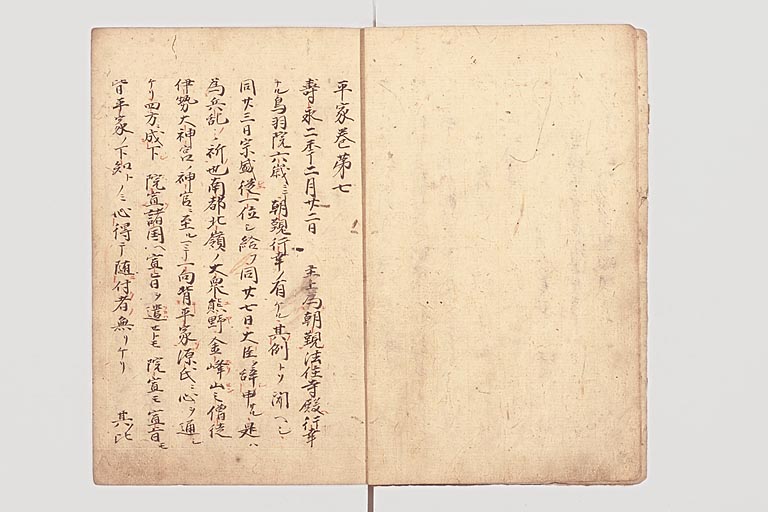 平家巻第七
壽永二年二月廿二日 主上為朝覲法住寺殿行幸
ナル鳥羽院六歳ニテ朝覲行幸ノ有ケル其例トソ聞ヘシ
同廿三日宗盛従一位シ給フ同廿七日大臣ヲ辞申ケル是ハ
為兵乱ノ祈也南都北嶺ノ大衆熊野金峰山ミノ僧徒
伊勢大神宮ノ神官ニ至ルマテ一向背平家源氏ニ心ヲ通シ
ケリ四方ニ成下 院宣諸国ヘ宣旨ヲ遣セトモ院宣モ宣旨モ
皆平家ノ下知トノミ心得テ随付者無リケリ 其比